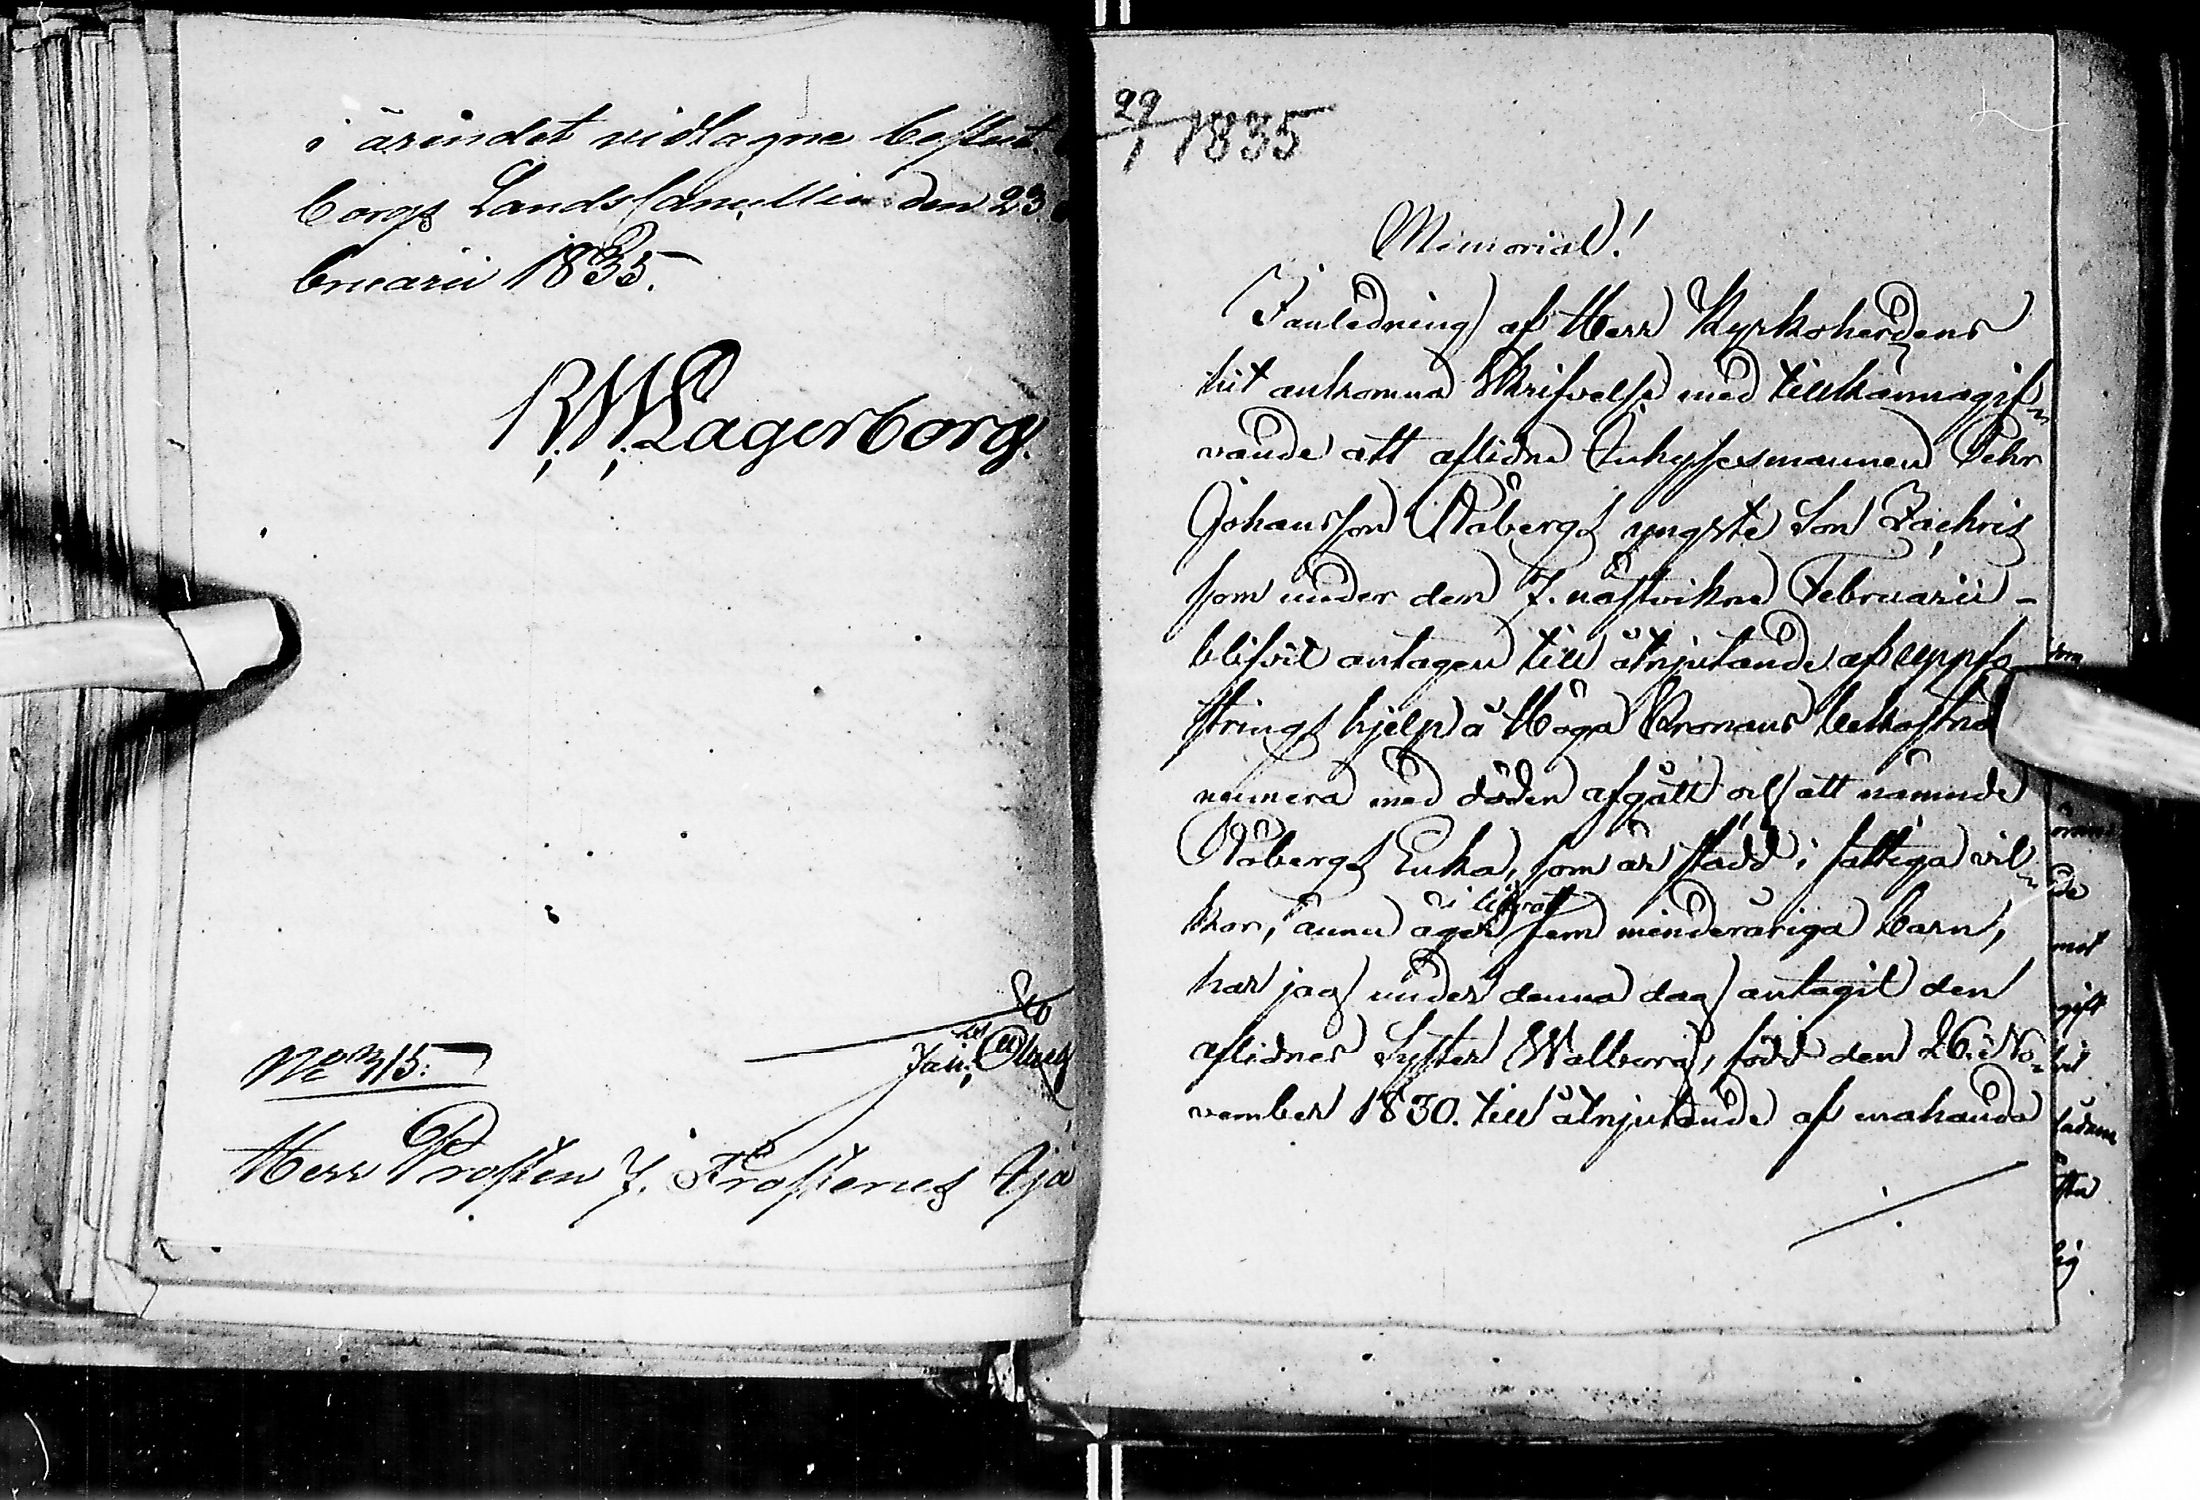 i ärendet vidtagne beslut.
borgs Lands Cancellie den 23
bruarii 1835.
R. W. Lagerborg.
No 315:
Herr Prosten J. Frosterus
29/1 1835
Memorial!
I anledning af Herr Kyrkoherdens
hit ankomna Skrifvelse med tillkännagif-
vande att aflidne Inhysesmannen Pehr
Johansson Råbergs yngste Son Zachris
som under den 7. nästvikne Februarii -
blifvit antagen till åtnjutande af uppfo
strings hjelp å Höga Kronans bekostnad
numera med döden afgått och att nämnde
Råbergs Enka, som är stadd i fattiga vil-
kor, ännu äger i lifvet fem minderåriga barn,
har jag under denna dag antagit den
aflidnes Syster Walborg, född den 26. No-
vember 1830. till åtnjutande af enahanda